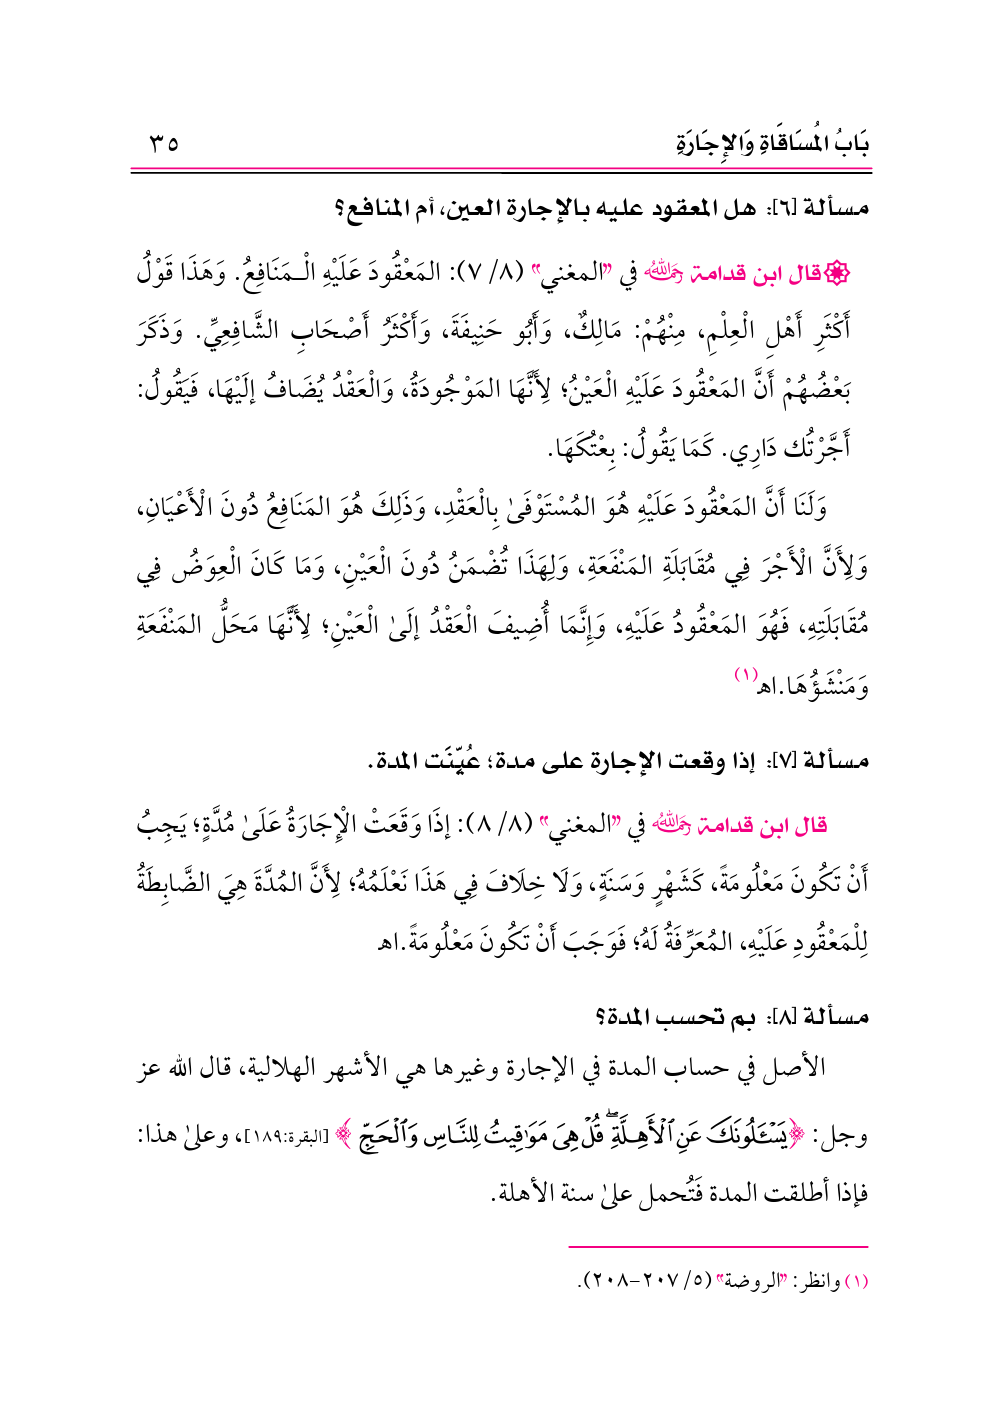 بَابُ المُسَاقَاةِ وَالإِجَارَةِ ٣٥
مسألة [٦]: هل المعقود عليه بالإجارة العين، أم المنافع؟
قال ابن قدامة رَحِمَهُ اللهُ في "المغني" (٨/ ٧): المَعْقُودَ عَلَيْهِ الْـمَنَافِعُ. وَهَذَا قَوْلُ
أَكْثَرِ أَهْلِ الْعِلْمِ، مِنْهُمْ: مَالِكٌ، وَأَبُو حَنِيفَةَ، وَأَكْثَرُ أَصْحَابِ الشَّافِعِيِّ. وَذَكَرَ
بَعْضُهُمْ أَنَّ المَعْقُودَ عَلَيْهِ الْعَيْنُ؛ لِأَنَّهَا المَوْجُودَةُ، وَالْعَقْدُ يُضَافُ إلَيْهَا، فَيَقُولُ:
أَجَّرْتُك دَارِي. كَمَا يَقُولُ: بِعْتُكَهَا.
وَلَنَا أَنَّ المَعْقُودَ عَلَيْهِ هُوَ المُسْتَوْفَىٰ بِالْعَقْدِ، وَذَلِكَ هُوَ المَنَافِعُ دُونَ الْأَعْيَانِ،
وَلِأَنَّ الْأَجْرَ فِي مُقَابَلَةِ المَنْفَعَةِ، وَلِهَذَا تُضْمَنُ دُونَ الْعَيْنِ، وَمَا كَانَ الْعِوَضُ فِي
مُقَابَلَتِهِ، فَهُوَ المَعْقُودُ عَلَيْهِ، وَإِنَّمَا أُضِيفَ الْعَقْدُ إلَىٰ الْعَيْنِ؛ لِأَنَّهَا مَحَلُّ المَنْفَعَةِ
وَمَنْشَؤُهَا.اهـ(١)
مسألة [٧]: إذا وقعت الإجارة على مدة؛ عُيِّنَت المدة.
قال ابن قدامة رَحِمَهُ اللهُ في "المغني" (٨/ ٨): إذَا وَقَعَتْ الْإِجَارَةُ عَلَىٰ مُدَّةٍ؛ يَجِبُ
أَنْ تَكُونَ مَعْلُومَةً، كَشَهْرٍ وَسَنَةٍ، وَلَا خِلَافَ فِي هَذَا نَعْلَمُهُ؛ لِأَنَّ المُدَّةَ هِيَ الضَّابِطَةُ
لِلْمَعْقُودِ عَلَيْهِ، المُعَرِّفَةُ لَهُ؛ فَوَجَبَ أَنْ تَكُونَ مَعْلُومَةً.اهـ
مسألة [٨]: بم تحسب المدة؟
الأصل في حساب المدة في الإجارة وغيرها هي الأشهر الهلالية، قال الله عز
وجل: ﴿يَسْـَٔلُونَكَ عَنِ ٱلْأَهِلَّةِ ۖ قُلْ هِىَ مَوَٰقِيتُ لِلنَّاسِ وَٱلْحَجِّ﴾ [البقرة:١٨٩]، وعلىٰ هذا:
فإذا أطلقت المدة فَتُحمل علىٰ سنة الأهلة.
(١) وانظر: "الروضة" (٥/ ٢٠٧-٢٠٨).